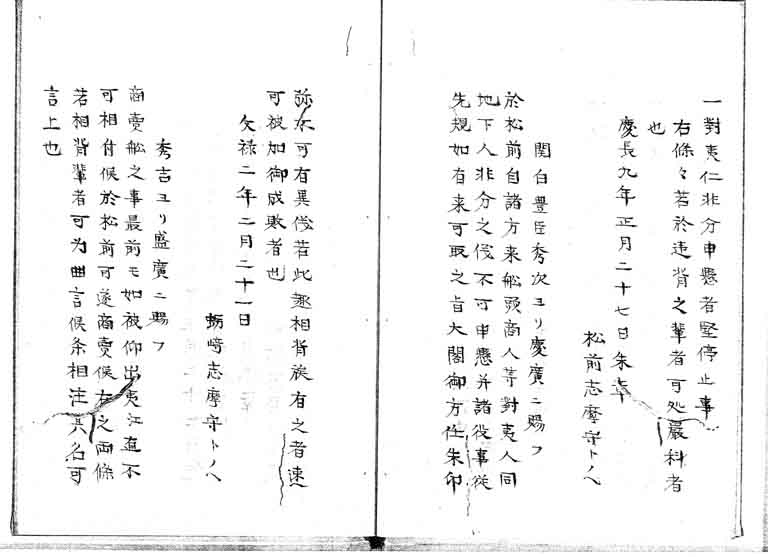 一對夷仁非分申懸者堅停止事
右條々若於違背之輩者可処嚴科者
也
慶長九年正月二十七日朱章
松前志摩守トノヘ
関白豊臣秀次ヨリ慶廣ニ賜フ
於松前自諸方来舩頭商人等對夷人同
地下人非分之儀不可申懸并諸役事従
先規如有来可取之旨大閤御方任朱印
弥不可有異儀若此趣相背族有之者速
可被加御成敗者也
文禄二年二月二十一日
蛎﨑志摩守トノヘ
秀吉ヨリ盛廣ニ賜フ
商賣舩之事最前モ如被仰出夷江直不
可相付候於松前可遂商賣候右之両條
若相背輩者可为曲言候条相注其名可
言上也